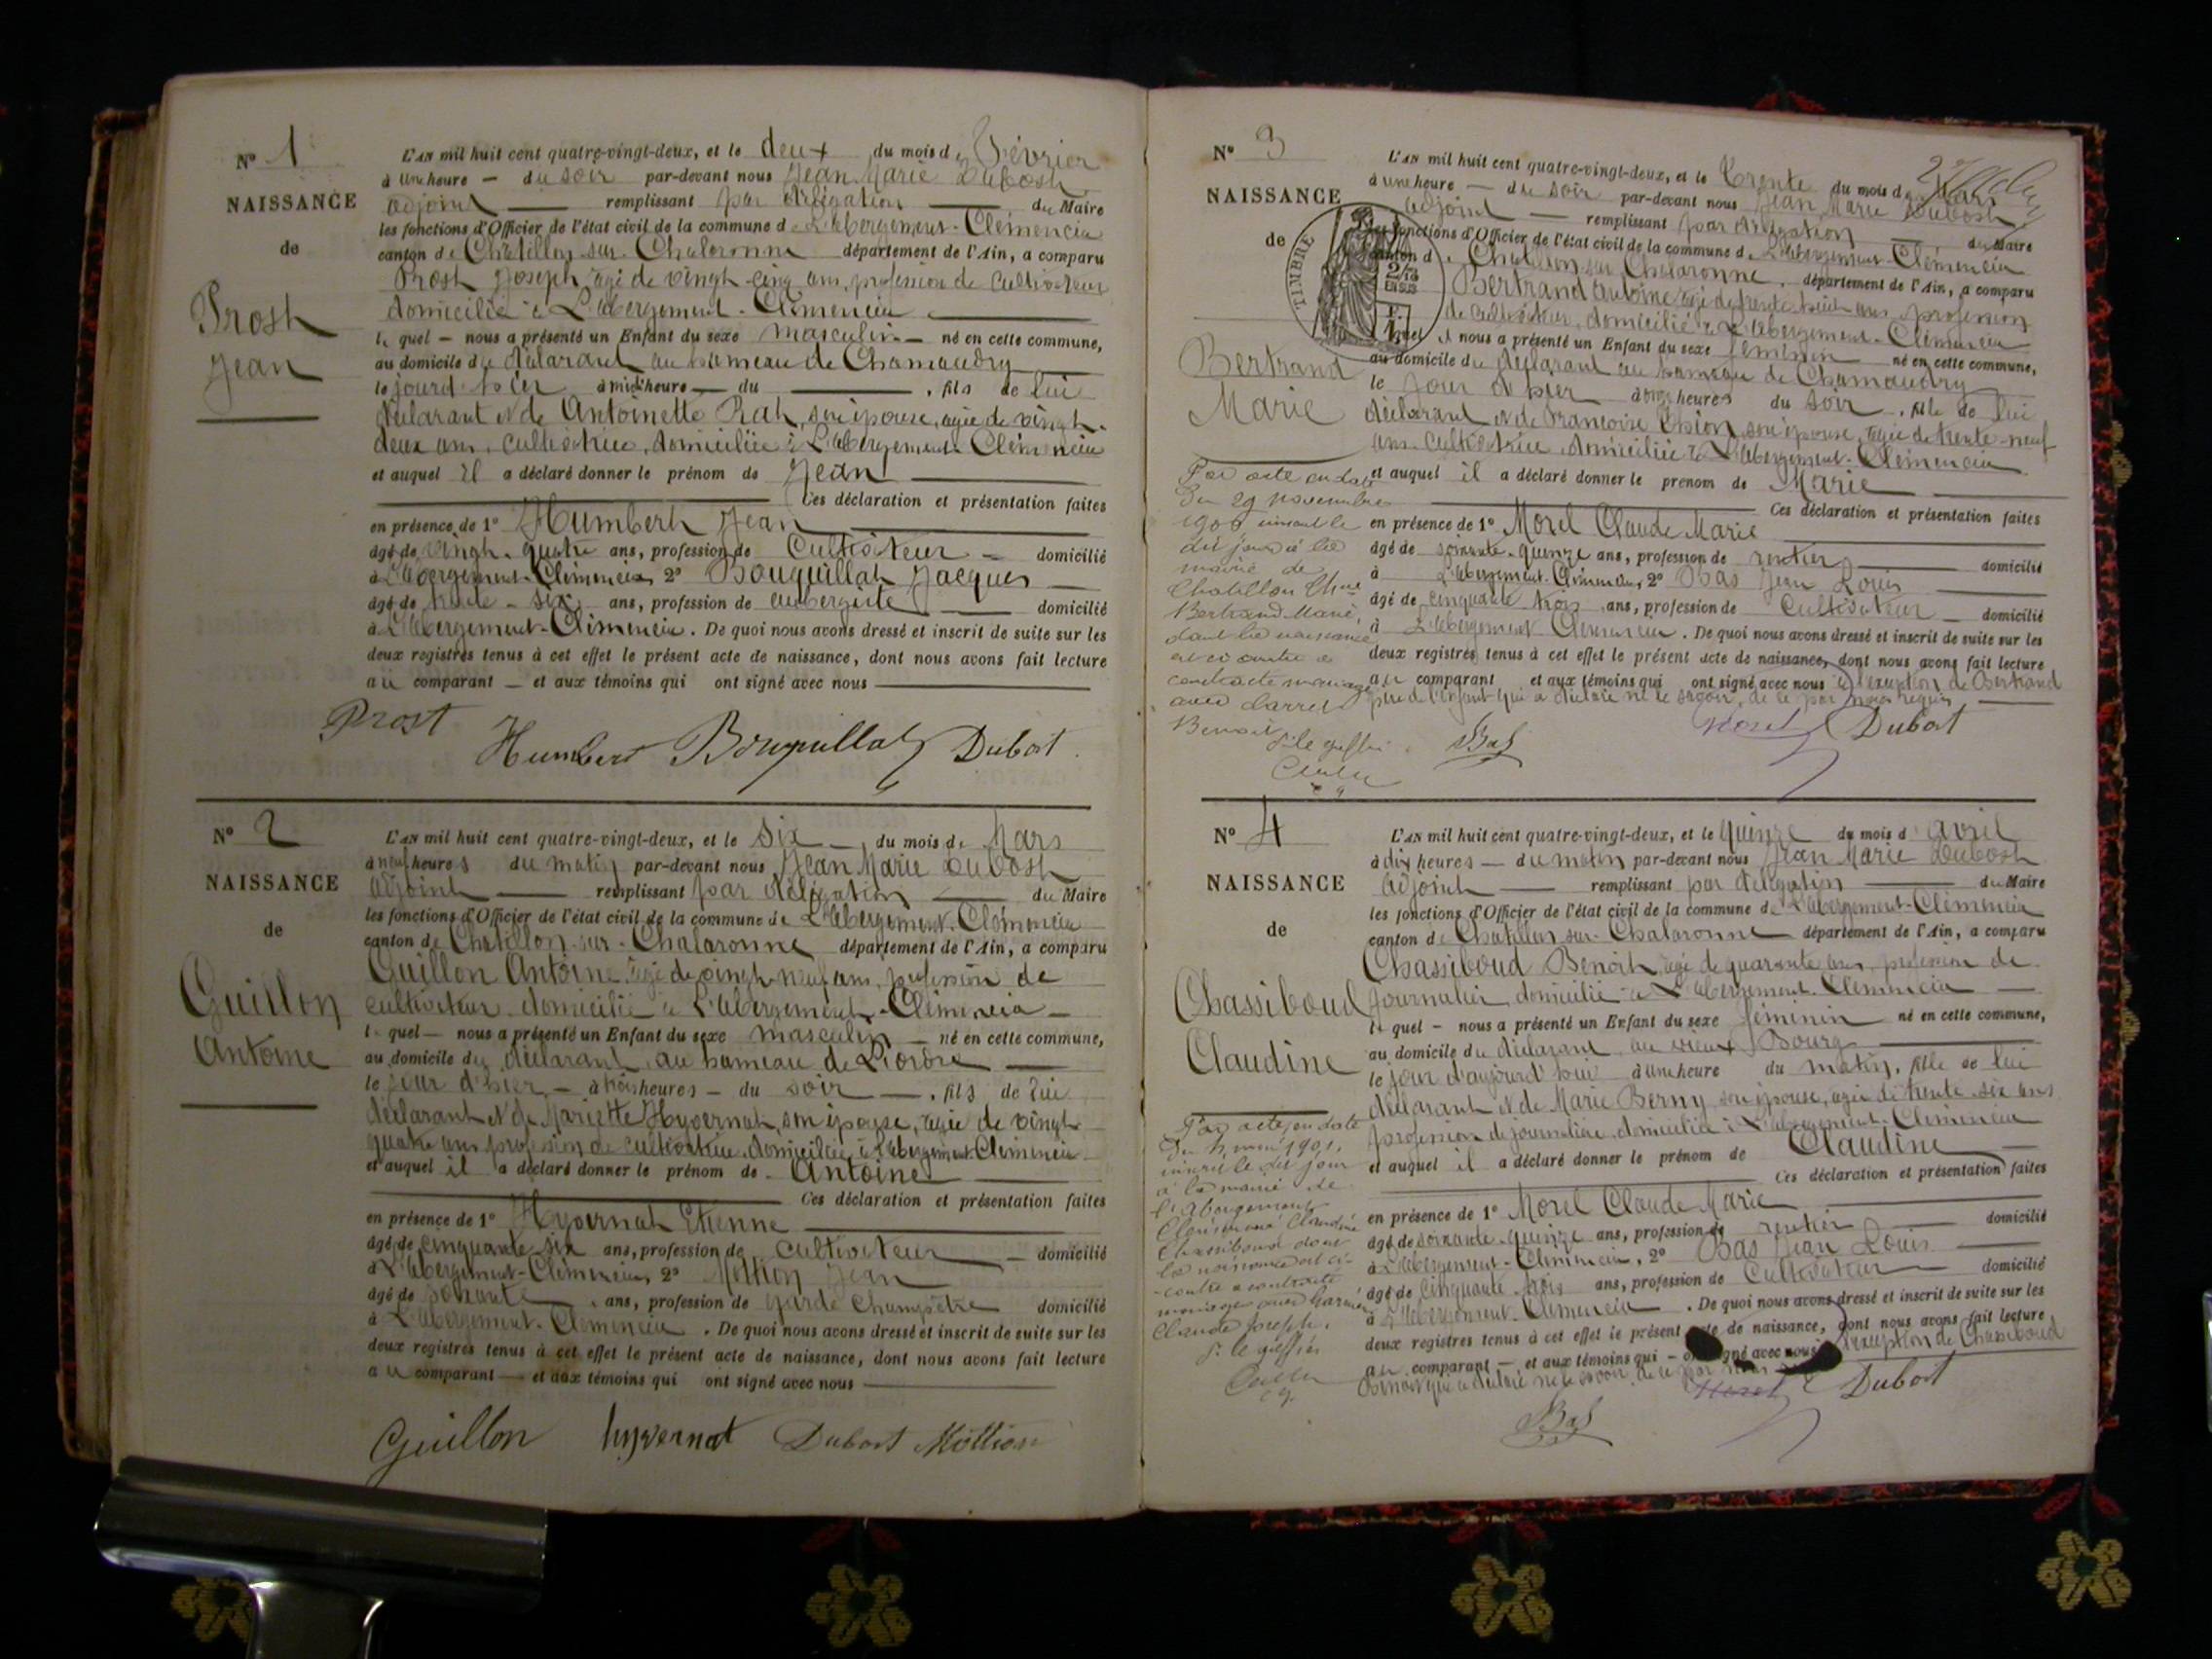 N° 1
NAISSANCE
de
Prost
Jean
L'AN mil huit cent quatre-vingt-deux, et le deux du mois de Février
à une heure — du soir par-devant nous Jean Marie Dubost
adjoint — remplissant par délégation — du Maire
les fonctions d'Officier de l'état civil de la commune de L'Abergement-Clémencia
canton de Chatillon-sur-Chalaronne département de l'Ain, a comparu
Prost Joseph, âgé de vingt-cinq ans, profession de cultivateur
domicilié à L'Abergement-Clémencia
lequel — nous a présenté un Enfant du sexe masculin — né en cette commune,
au domicile du déclarant au hameau de Chamaudry
le jour d'hier à midi heure — du — , fils de lui
déclarant et de Antoinette Rat, son épouse, agée de vingt-
deux ans, cultivatrice, domiciliée à L'Abergement-Clémencia
et auquel il a déclaré donner le prénom de Jean
Ces déclaration et présentation faites
en présence de 1° Humbert Jean
âgé de vingt-quatre ans, profession de Cultivateur — domicilié
à L'Abergement-Clémencia, 2° Bouquillat Jacques
âgé de trente-six ans, profession de aubergiste — domicilié
à L'Abergement-Clémencia. De quoi nous avons dressé et inscrit de suite sur les
deux registres tenus à cet effet le présent acte de naissance, dont nous avons fait lecture
au comparant — et aux témoins qui ont signé avec nous
Prost Humbert Bouquillat Dubost
N° 2
NAISSANCE
de
Guillon
Antoine
L'AN mil huit cent quatre-vingt-deux, et le six — du mois de Mars
à neuf heures du matin par-devant nous Jean Marie Dubost
adjoint — remplissant par délégation — du Maire
les fonctions d'Officier de l'état civil de la commune de L'Abergement-Clémencia
canton de Chatillon-sur-Chalaronne département de l'Ain, a comparu
Guillon Antoine, âgé de vingt-neuf ans, profession de
cultivateur domicilié à L'Abergement-Clémencia —
lequel — nous a présenté un Enfant du sexe masculin — né en cette commune,
au domicile du déclarant, au hameau de Liordre
le jour d'hier — à trois heures — du soir — , fils de lui
déclarant et de Mariette Hyvernat, son épouse, agée de vingt
quatre ans profession de cultivatrice, domiciliée à L'Abergement-Clémencia
et auquel il a déclaré donner le prénom de Antoine
Ces déclaration et présentation faites
en présence de 1° Hyvernat Etienne
âgé de cinquante six ans, profession de cultivateur — domicilié
à L'Abergement-Clémencia, 2° Mottion Jean
âgé de soixante ans, profession de garde champêtre domicilié
à L'Abergement-Clémencia. De quoi nous avons dressé et inscrit de suite sur les
deux registres tenus à cet effet le présent acte de naissance, dont nous avons fait lecture
au comparant — et aux témoins qui ont signé avec nous
Guillon hyvernat Dubost Mottion
N° 3
NAISSANCE
de
TIMBRE
Bertrand
Marie
L'AN mil huit cent quatre-vingt-deux, et le trente du mois de Mars
à une heure — du soir par-devant nous Jean Marie Dubost
adjoint — remplissant par délégation — du Maire
les fonctions d'Officier de l'état civil de la commune de L'Abergement-Clémencia
canton de Chatillon sur Chalaronne, département de l'Ain, a comparu
Bertrand Antoine, âgé de trente huit ans, profession
de cultivateur, domicilié à L'Abergement-Clémencia
lequel nous a présenté un Enfant du sexe féminin né en cette commune,
au domicile du déclarant au hameau de Chamaudry
le jour d'hier à onze heures du soir, fille de lui
déclarant et de Françoise Chion, son épouse, agée de trente-neuf
ans, cultivatrice, domiciliée à L'Abergement-Clémencia
et auquel il a déclaré donner le prénom de Marie
Ces déclaration et présentation faites
en présence de 1° Morel Claude Marie
âgé de soixante-quinze ans, profession de rentier — domicilié
à L'Abergement-Clémencia, 2° Bas Jean Louis
âgé de cinquante-trois ans, profession de Cultivateur — domicilié
à L'Abergement Clémencia. De quoi nous avons dressé et inscrit de suite sur les
deux registres tenus à cet effet le présent acte de naissance, dont nous avons fait lecture
au comparant et aux témoins qui ont signé avec nous à l'exception de Bertrand
père de l'enfant qui a déclaré ne le savoir, de ce par nous requis
Par acte en date
du 29 novembre
inscrit le
dit jour à la
mairie de
Chatillon
Bertrand Marie,
dont la naissance
est ci contre a
contracté mariage
avec
Benoit
Bas Morel Dubost
N° 4
NAISSANCE
de
Chassiboud
Claudine
L'AN mil huit cent quatre-vingt-deux, et le quinze du mois d'avril
à dix heures — du matin par-devant nous Jean Marie Dubost
adjoint — remplissant par délégation — du Maire
les fonctions d'Officier de l'état civil de la commune de L'Abergement-Clémencia
canton de Chatillon sur Chalaronne département de l'Ain, a comparu
Chassiboud Benoit, agé de quarante ans, profession de
journalier, domicilié à L'Abergement-Clémencia —
lequel — nous a présenté un Enfant du sexe féminin né en cette commune,
au domicile du déclarant, au vieux Bourg
le jour d'aujourd'hui à une heure du matin, fille de lui
déclarant et de Marie Berny son épouse, agée de trente-six ans
profession de journalière, domiciliée à L'Abergement-Clémencia
et auquel il a déclaré donner le prénom de Claudine
Ces déclaration et présentation faites
en présence de 1° Morel Claude Marie
âgé de soixante-quinze ans, profession de rentier — domicilié
à L'Abergement-Clémencia, 2° Bas Jean Louis
âgé de cinquante-trois ans, profession de Cultivateur domicilié
à L'Abergement-Clémencia. De quoi nous avons dressé et inscrit de suite sur les
deux registres tenus à cet effet le présent acte de naissance, dont nous avons fait lecture
au comparant — et aux témoins qui — ont signé avec nous à l'exception de Chassiboud
Benoit qui a déclaré ne le savoir, de ce par nous
Par acte en date
du mai 1901,
inscrit le dit jour
à la mairie de
l'Abergement
Clémencia Claudine
Chassiboud dont
la naissance est ci-
contre a contracté
mariage avec
Claude Joseph.
Pr le greffier
Bas Morel Dubost